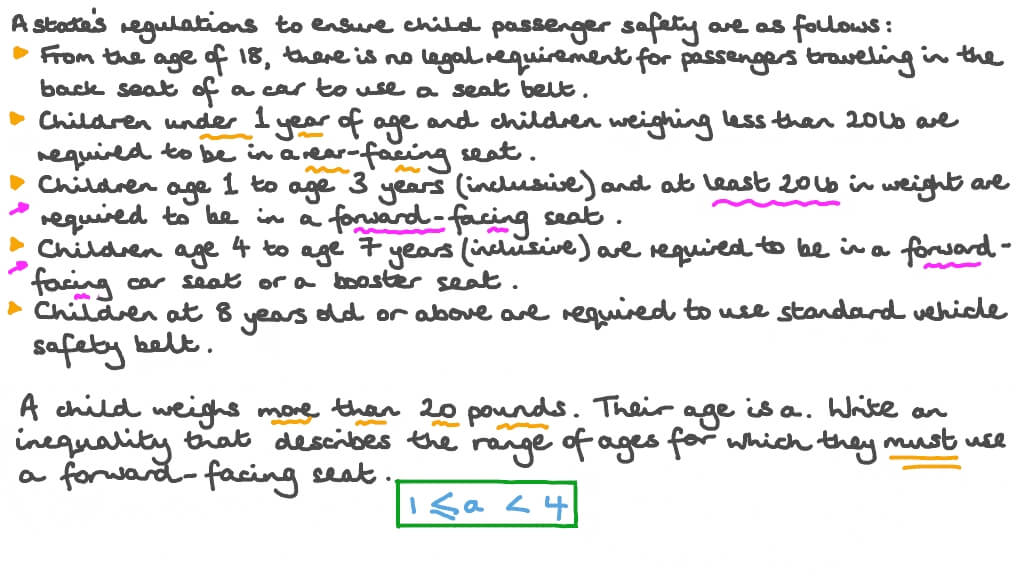 A state's regulations to ensure child passenger safety are as follows:
From the age of 18, there is no legal requirement for passengers traveling in the
back seat of a car to use a seat belt.
Children under 1 year of age and children weighing less than 20lb are
required to be in a rear-facing seat.
Children age 1 to age 3 years (inclusive) and at least 20lb in weight are
required to be in a forward-facing seat.
Children age 4 to age 7 years (inclusive) are required to be in a forward-
facing car seat or a booster seat.
Children at 8 years old or above are required to use standard vehicle
safety belt.
A child weighs more than 20 pounds. Their age is a. Write an
inequality that describes the range of ages for which they must use
a forward-facing seat.
1 ⩽ a < 4